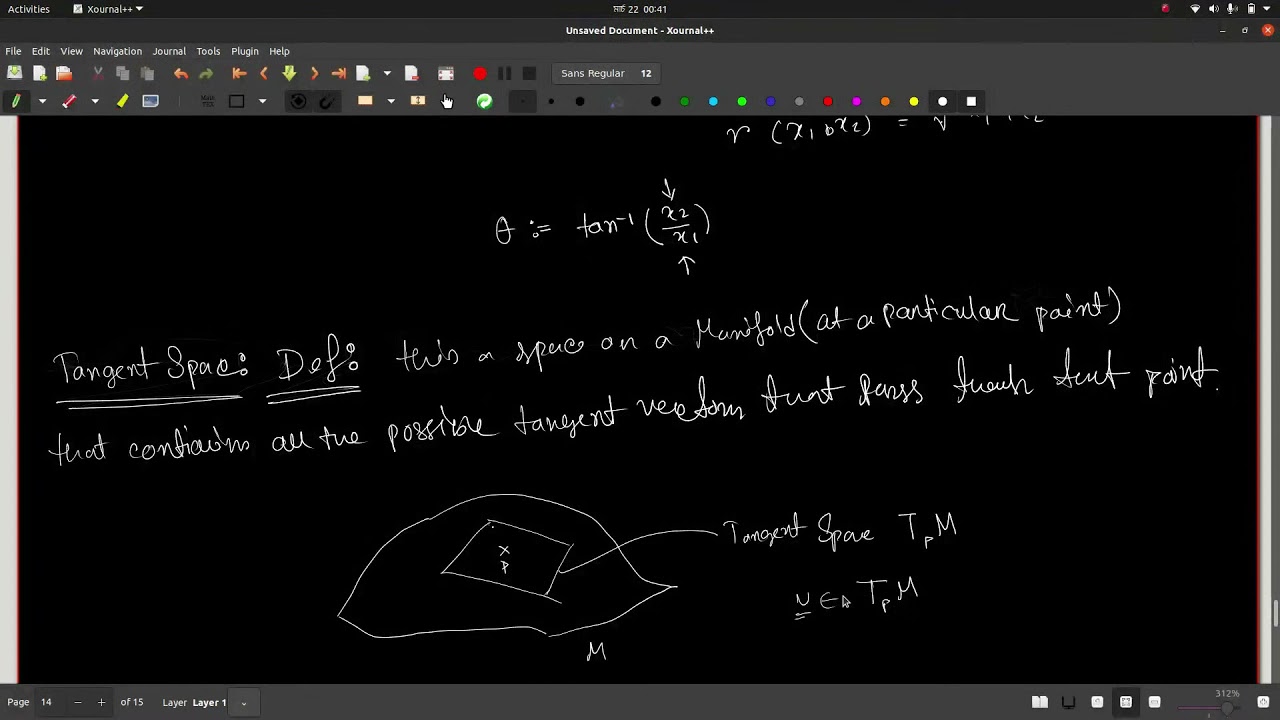 Activities Xournal++ মার্চ 22 00:41
Unsaved Document - Xournal++
File Edit View Navigation Journal Tools Plugin Help
Sans Regular 12
r (x₁, x₂) =
θ := tan⁻¹ (x₂/x₁)
Tangent Space: Def: this a space on a Manifold (at a particular point)
that contains all the possible tangent vectors that pass that point.
Tangent Space TₚM
x
p
v ∈ TₚM
M
Page 14 - + of 15 Layer Layer 1 312%